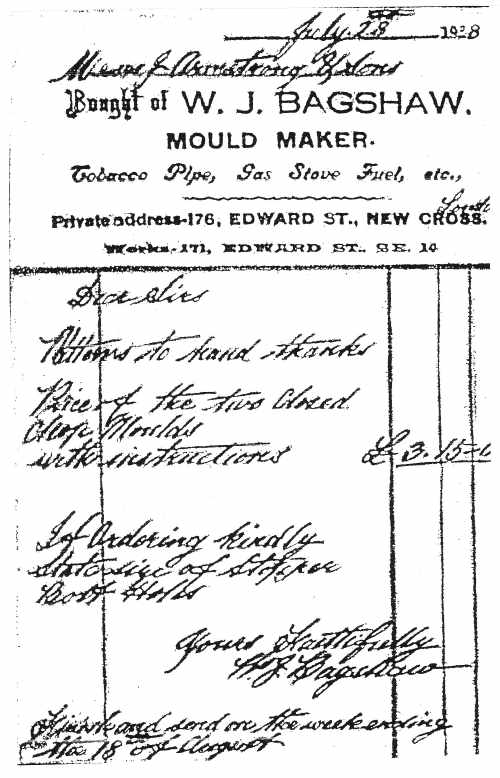 July 28 1928
Messrs J Armstrong & Sons
Bought of W. J. BAGSHAW,
MOULD MAKER.
Tobacco Pipe, Gas Stove Fuel, etc.,
Private address-176, EDWARD ST., NEW CROSS.
Works-171, EDWARD ST., SE. 14
Dear Sirs
to hand thanks
Price of the two Closed
Moulds
with instructions £ 3.15-0
If Ordering kindly
State size of Stopper
Holes
Yours Faithfully
W J Bagshaw
and send on the week ending
18 of August